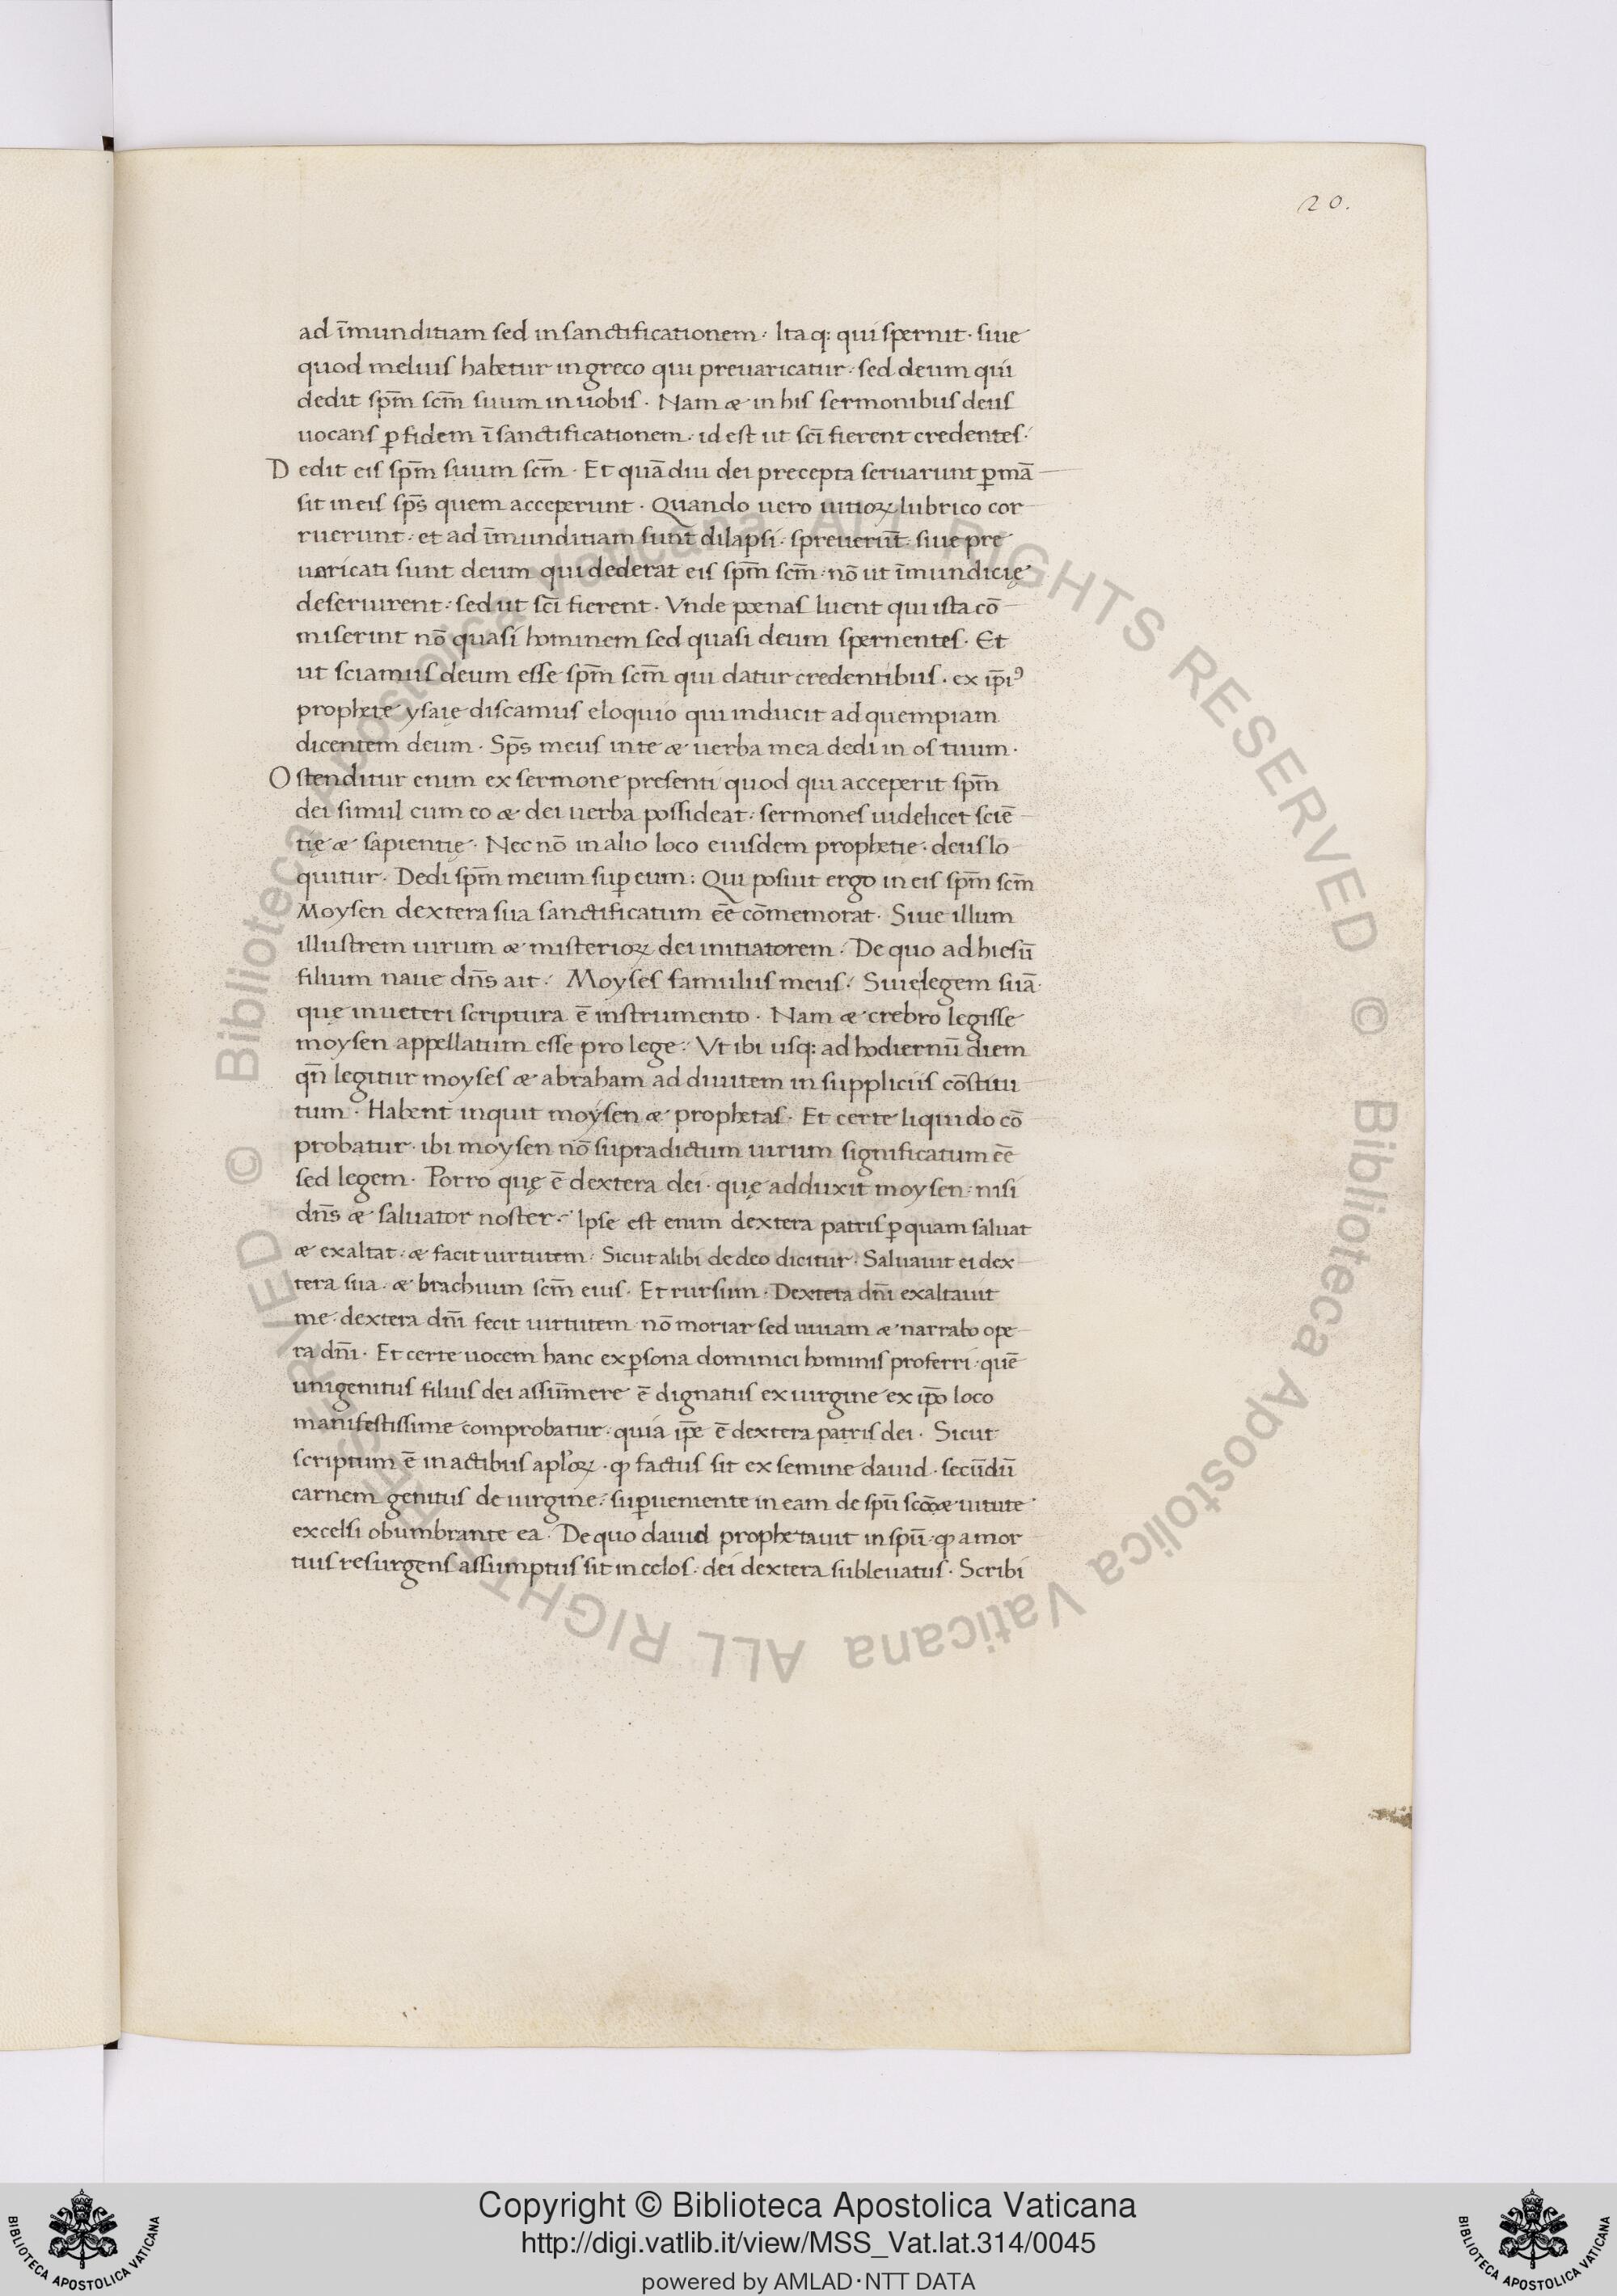 20.
ad īmunditiam sed in sanctificationem · Itaq: qui spernit · siue
quod melius habetur in greco qui preuaricatur · sed deum qui
dedit sp̄m sc̄m suum in uobis · Nam æ in his sermonibus deus
uocans ꝑ fidem ī sanctificationem · id est ut sc̄i fierent credentes ·
Dedit eis sp̄m suum sc̄m · Et quādiu dei precepta seruarunt ꝑmā
sit in eis sp̄s quem acceperunt · Quando uero uitioꝝ lubrico cor
ruerunt · et ad īmunditiam sunt dilapsi · spreuerūt siue pre
uaricati sunt deum qui dederat eis sp̄m sc̄m · nō ut īmundicię
deseruirent · sed ut sc̄i fierent · Vnde pœnas luent qui ista cō
miserint nō quasi hominem sed quasi deum spernentes · Et
ut sciamus deum esse sp̄m sc̄m qui datur credentibus · ex ip̄iꝰ
prophete ysaię discamus eloquio qui inducit ad quempiam
dicentem deum · Sp̄s meus in te æ uerba mea dedi in os tuum ·
Ostenditur enim ex sermone presenti quod qui acceperit sp̄m
dei simul cum eo æ dei uerba possideat · sermones uidelicet sciē
tię æ sapientię · Nec nō in alio loco eiusdem prophetie · deus lo
quitur · Dedi sp̄m meum suꝑ eum : Qui posuit ergo in eis sp̄m sc̄m
Moysen dextera sua sanctificatum eē cōmemorat · Siue illum
illustrem uirum æ misterioꝝ dei initiatorem · De quo ad hiesū
filium naue dn̄s ait · Moyses famulus meus · Siue legem suā ·
quę in ueteri scriptura ē instrumento · Nam æ crebro legisse
moysen appellatum esse pro lege · Vt ibi usq: ad hodiernū diem
qn̄ legitur moyses æ abraham ad diuitem in suppliciis cōstitu
tum · Habent inquit moysen æ prophetas · Et certe liquido cō
probatur · ibi moysen nō supradictum uirum significatum eē
sed legem · Porro quę ē dextera dei · quę adduxit moysen · nisi
dn̄s æ saluator noster · Ipse est enim dextera patris ꝑ quam saluat
æ exaltat · æ facit uirtutem · Sicut alibi de deo dicitur · Saluauit ei dex
tera sua · æ brachium sc̄m eius · Et rursum · Dextera dn̄i exaltauit
me · dextera dn̄i fecit uirtutem nō moriar sed uiuam æ narrabo ope
ra dn̄i · Et certe uocem hanc ex ꝑsona dominici hominis proferri · quē
unigenitus filius dei assum̄ere ē dignatus ex uirgine ex ip̄o loco
manifestissime comprobatur · quia ip̄e ē dextera patris dei · Sicut
scriptum ē in actibus apl'oꝝ · ꝙ factus sit ex semine dauid · secūdū
carnem genitus de uirgine · suꝑueniente in eam de spū sc̄o æ uitute
excelsi obumbrante ea · De quo dauid prophetauit in spū · ꝙ a mor
tuis resurgens assumptus sit in celos · dei dextera subleuatus · Scribi
© Biblioteca Apostolica Vaticana ALL RIGHTS RESERVED © Biblioteca Apostolica Vaticana ALL RIGHTS RESERVED
Copyright © Biblioteca Apostolica Vaticana
http://digi.vatlib.it/view/MSS_Vat.lat.314/0045
powered by AMLAD·NTT DATA
BIBLIOTECA APOSTOLICA VATICANA
BIBLIOTECA APOSTOLICA VATICANA